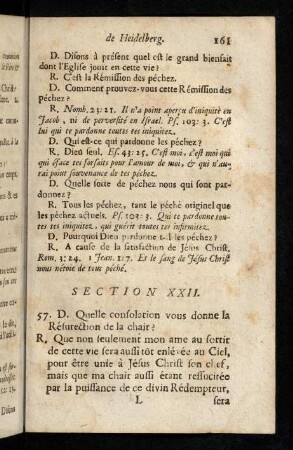 de Heidelberg. 161
D. Disons à présent quel est le grand bienfait
dont l'Eglise jouït en cette vie?
R. C'est la Rémission des péchez.
D. Comment prouvez-vous cette Rémission des
péchez?
R. Nomb. 23: 21. Il n'a point aperçu d'iniquité en
Jacob, ni de perversité en Israel. Ps. 103: 3. C'est
lui qui te pardonne toutes tes iniquitez.
D. Qui est-ce qui pardonne les péchez?
R. Dieu seul, Es. 43: 25, C'est moi, c'est moi qui
qui éface tes forfaits pour l'amour de moi, & qui n'au-
rai point souvenance de tes péchez.
D. Quelle sorte de péchez nous qui sont par-
donnez?
R. Tous les péchez, tant le péché originel que
les péchez actuels. Ps. 103: 3. Qui te pardonne tou-
tes tes iniquitez, qui guérit toutes tes infirmitez.
D. Pourquoi Dieu pardonne t-il les péchez?
R. A cause de la satisfaction de Jésus Christ.
Rom. 3: 24. 1 Jean. 1: 7. Et le sang de Jésus Christ
nous nétoie de tous péché.
SECTION XXII.
57. D. Quelle consolation vous donne la
Résurection de la chair?
R. Que non seulement mon ame au sortir
de cette vie sera aussi tôt enlévée au Ciel,
pour être unie à Jésus Christ son chef,
mais que ma chair aussi étant ressucitée
par la puissance de ce divin Rédempteur,
L sera